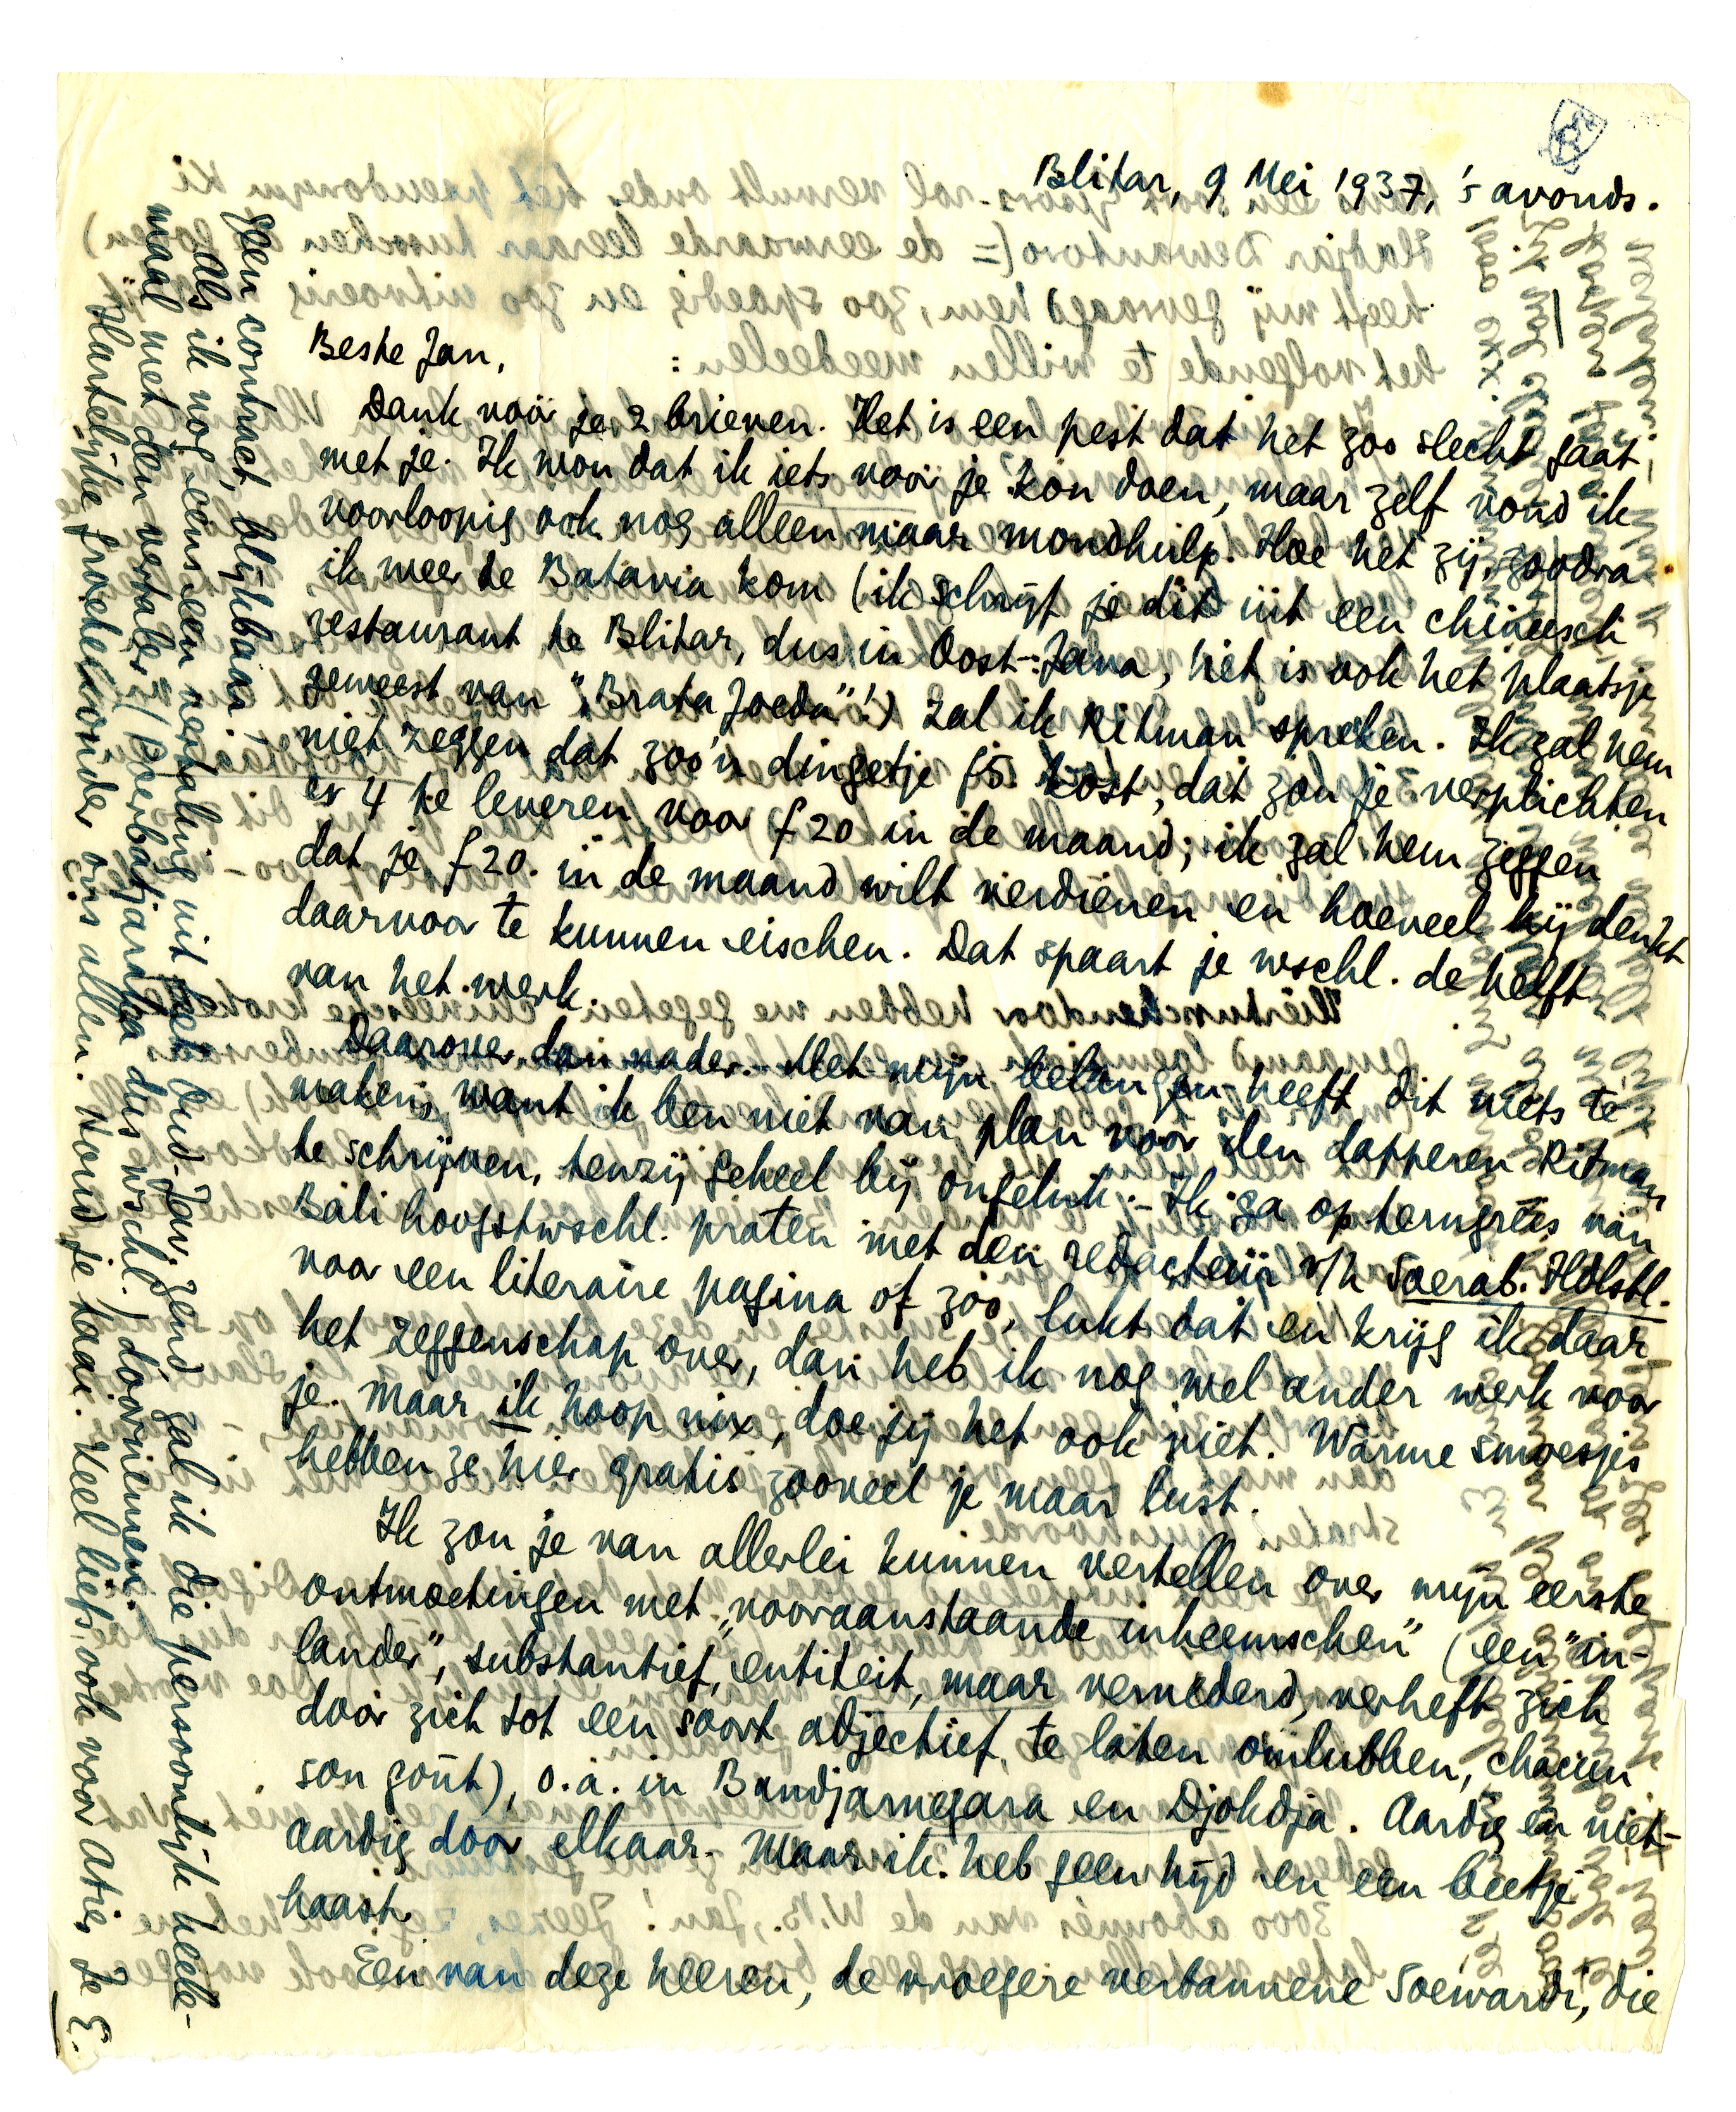 Blitar, 9 Mei 1937, 's avonds.
Beste Jan,
Dank voor je 2 brieven. Het is een pest dat het zoo slecht gaat
met je. Ik wou dat ik iets voor je kon doen, maar zelf vond ik
voorloopig ook nog alleen maar mondhulp. Hoe het zij, zoodra
ik weer te Batavia kom (ik schrijf je dit uit een chineesch
restaurant te Blitar, dus in Oost-Java, het is ook het plaatsje
geweest van "Brata Joeda"!) zal ik Ritman spreken. Ik zal hem
niet zeggen dat zoo'n dingetje f 5. kost, dat zou je verplichten
er 4 te leveren voor f 20 in de maand; ik zal hem zeggen
dat je f 20. in de maand wilt verdienen en hoeveel hij denkt
daarvoor te kunnen eischen. Dat spaart je wschl. de helft
van het werk.
Daarover dan nader. Met mijn belangen heeft dit niets te
maken, want ik ben niet van plan voor den dapperen Ritman
te schrijven, tenzij geheel bij ongeluk. – Ik ga op terugreis van
Bali hoogstwschl. praten met den redacteur v/h Soerab. Hdlsbl.
voor een literaire pagina of zoo, lukt dat en krijg ik daar
het zeggenschap over, dan heb ik nog wel ander werk voor
je. Maar ik hoop nix, doe jij het ook niet. Warme smoesjes
hebben ze hier gratis zooveel je maar lust.
Ik zou je van allerlei kunnen vertellen over mijn eerste
ontmoetingen met „vooraanstaande inheemschen” (een "in-
lander", substantief, entiteit, maar vernederd, verheft zich
door zich tot een soort adjectief te laten omlubben, chacun
son goût), o.a. in Bandjarnegara en Djokdja. Aardig en niet-
aardig door elkaar. Maar ik heb geen tijd en een beetje
haast.
Een van deze heeren, de vroegere verbannene Soewardi, die
geen contract, blijkbaar.
Als ik nog eens een vertaling uit het Oud-Jav. zend zal ik die persoonlijk heele-
maal met den vertaler (Poerbatjaraka dus wschl.) doornemen.
Hartelijke groeten onder ons allen. Houd je taai. Veel liefs ook voor Atie, Je E.